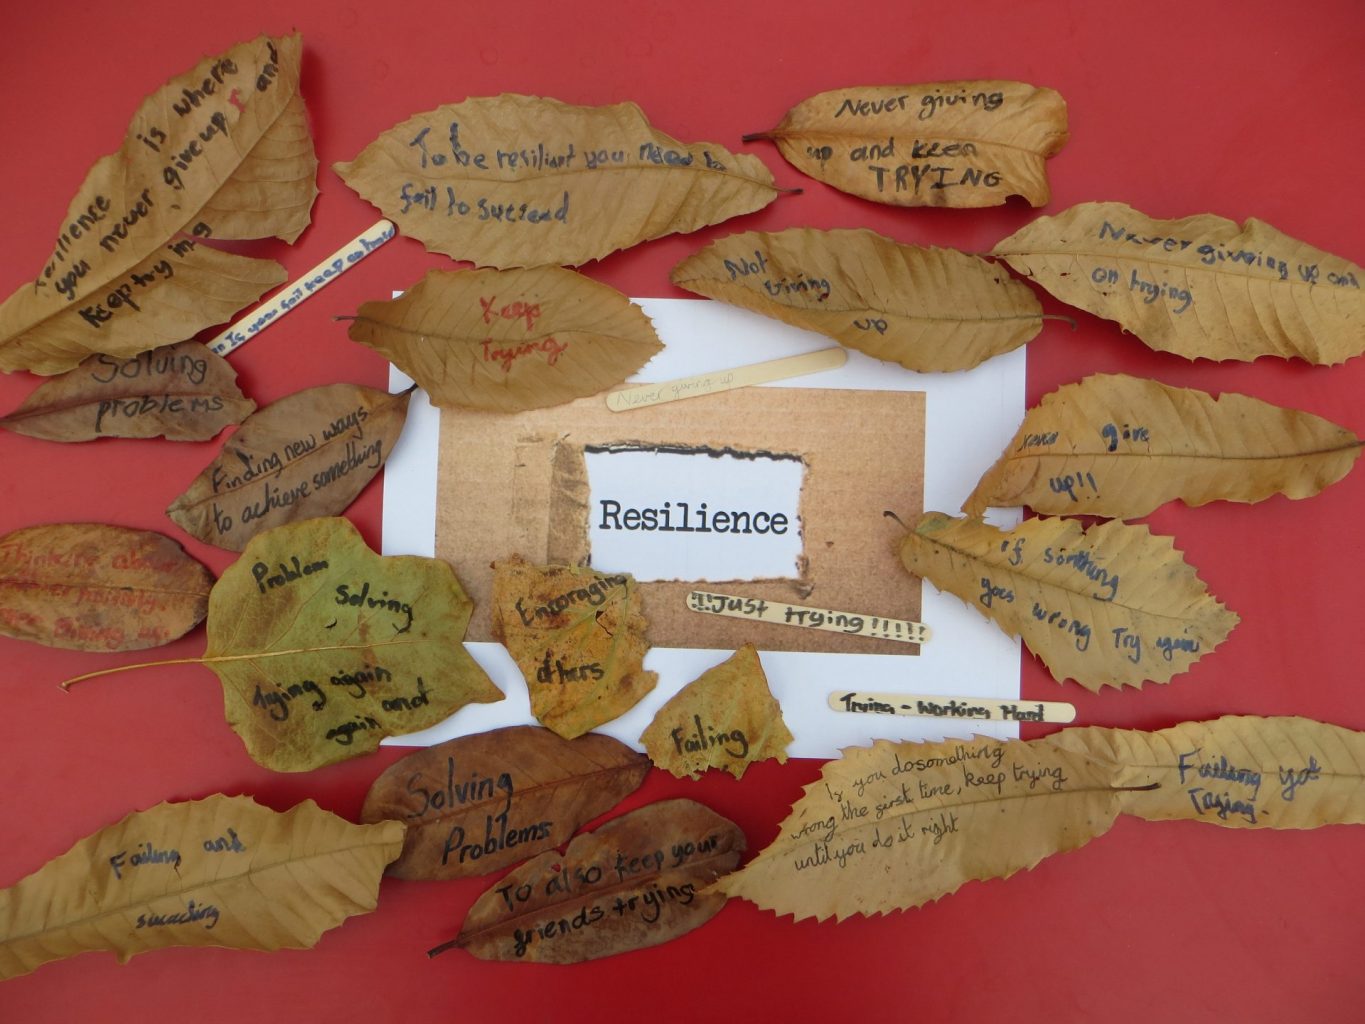 resilience is where
you never give up, and
keep trying
To be resiliant you need to
fail to succeed
Never giving
up and keep
TRYING
Never giveing up and
on trying
Not
Giving
up
Keep
Trying
Never giving up
Solving
problems
Finding new ways
to achieve something
Resilience
never give
up!!
if somthing
goes wrong Try again
Problem
Solving
Trying again
again and
Encoraging
others
!!Just trying!!!!!
Trying - Working Hard
Failing
Solving
Problems
Is you do something
wrong the first time, keep trying
until you do it right
Failing yet
Trying.
Failing and
To also keep your
friends trying